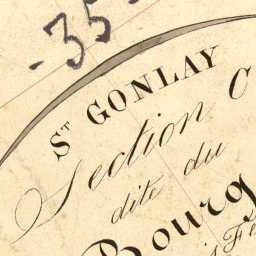 -35-
ST GONLAY
Section C
dite du
Bourg